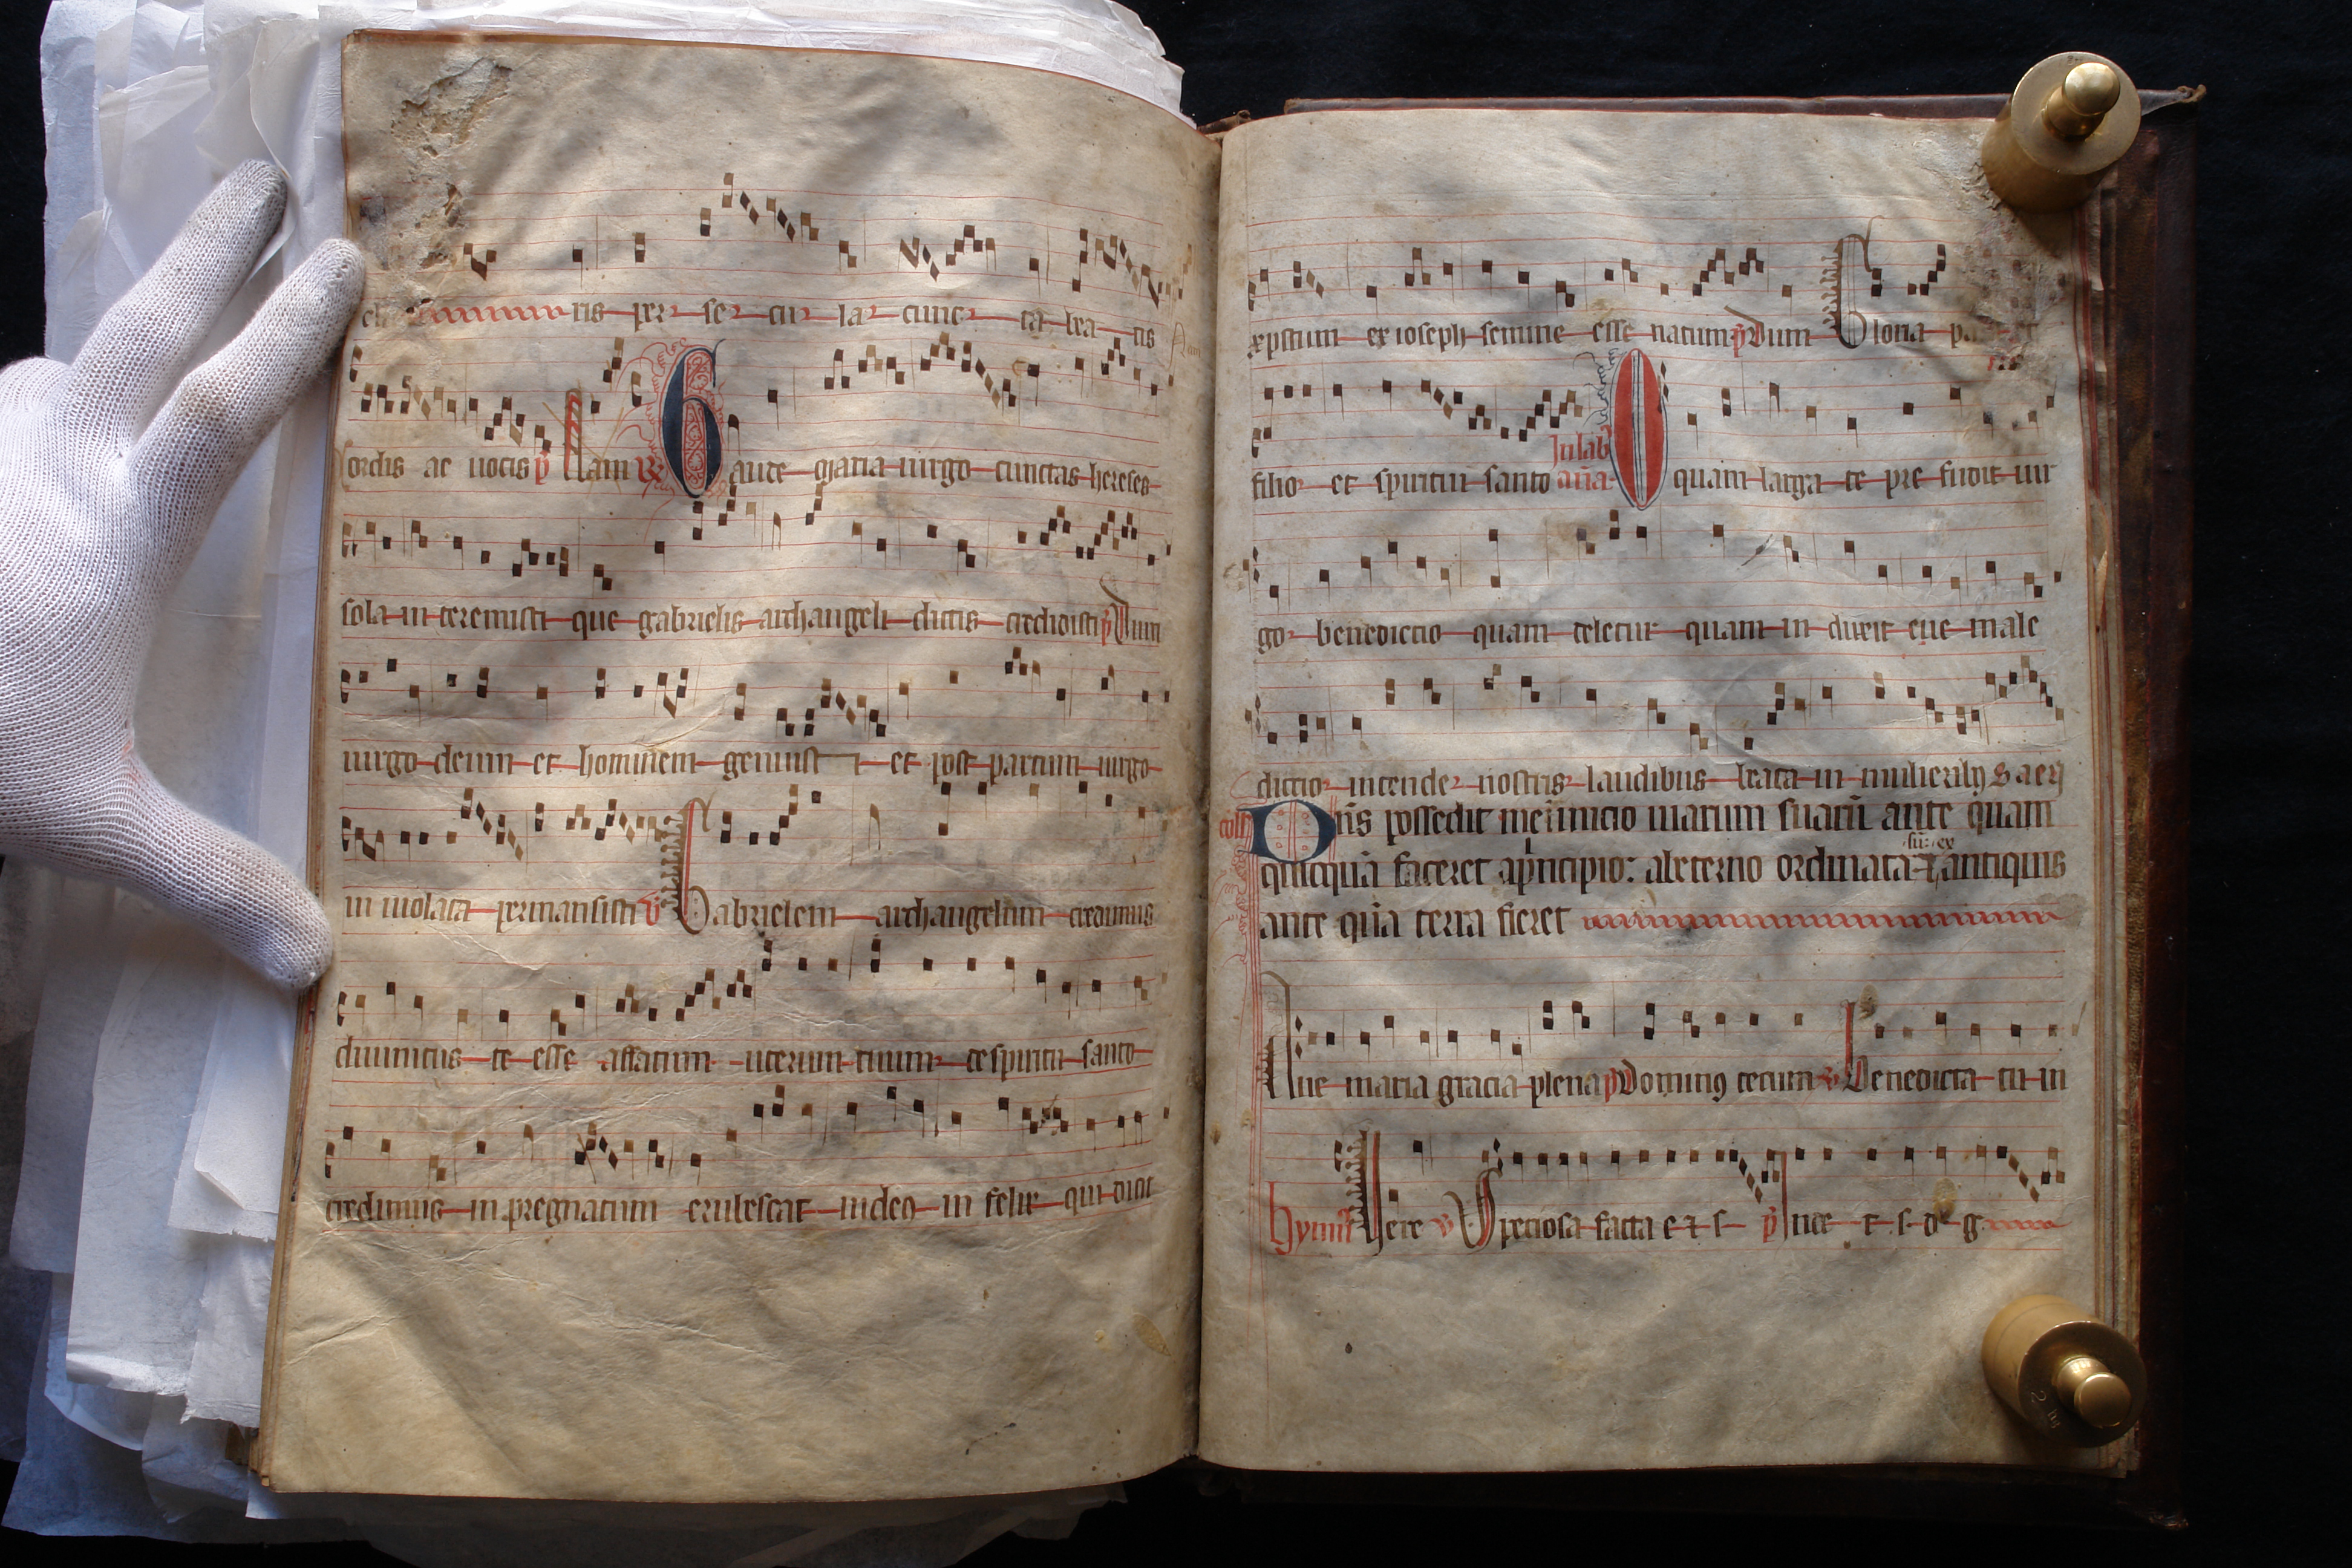 ris per se cu la cunc ta bea tis
cordis ac uocis p Nam R Gaude maria uirgo cunctas hereses
sola in teremisti que gabrielis archangeli dictis credidisti p Dum
uirgo deum et hominem genuist i et post partum uirgo
in uiolata permansisti V Gabrielem archangelum credimus
diuinitus te esse affatum uterum tuum de spiritu santo
credimus in pregnatum erubescat iudeus in felix qui dicit
xpistum ex ioseph semine esse natum p Dum Gloria pa
filio et spiritui santo In lab aña O quam larga te pre fudit uir
go benedictio quam deletur quam in duxit eue male
dictio intende nostris laudibus beata in mulierib;
Dñs possedit me inicio uiarum suarũ ante quam
quicquã faceret apricipio: abeterno ordinata antiquis
ante quã terra fieret
Aue maria gracia plena p Dominus tecum V Benedicta tu in
hymus V Speciosa facta e τ s p